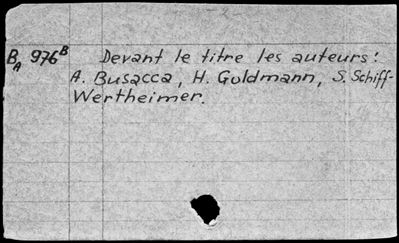 B_A 976^B Devant le titre les auteurs:
A. Busacca, H. Goldmann, S. Schiff-
Wertheimer.